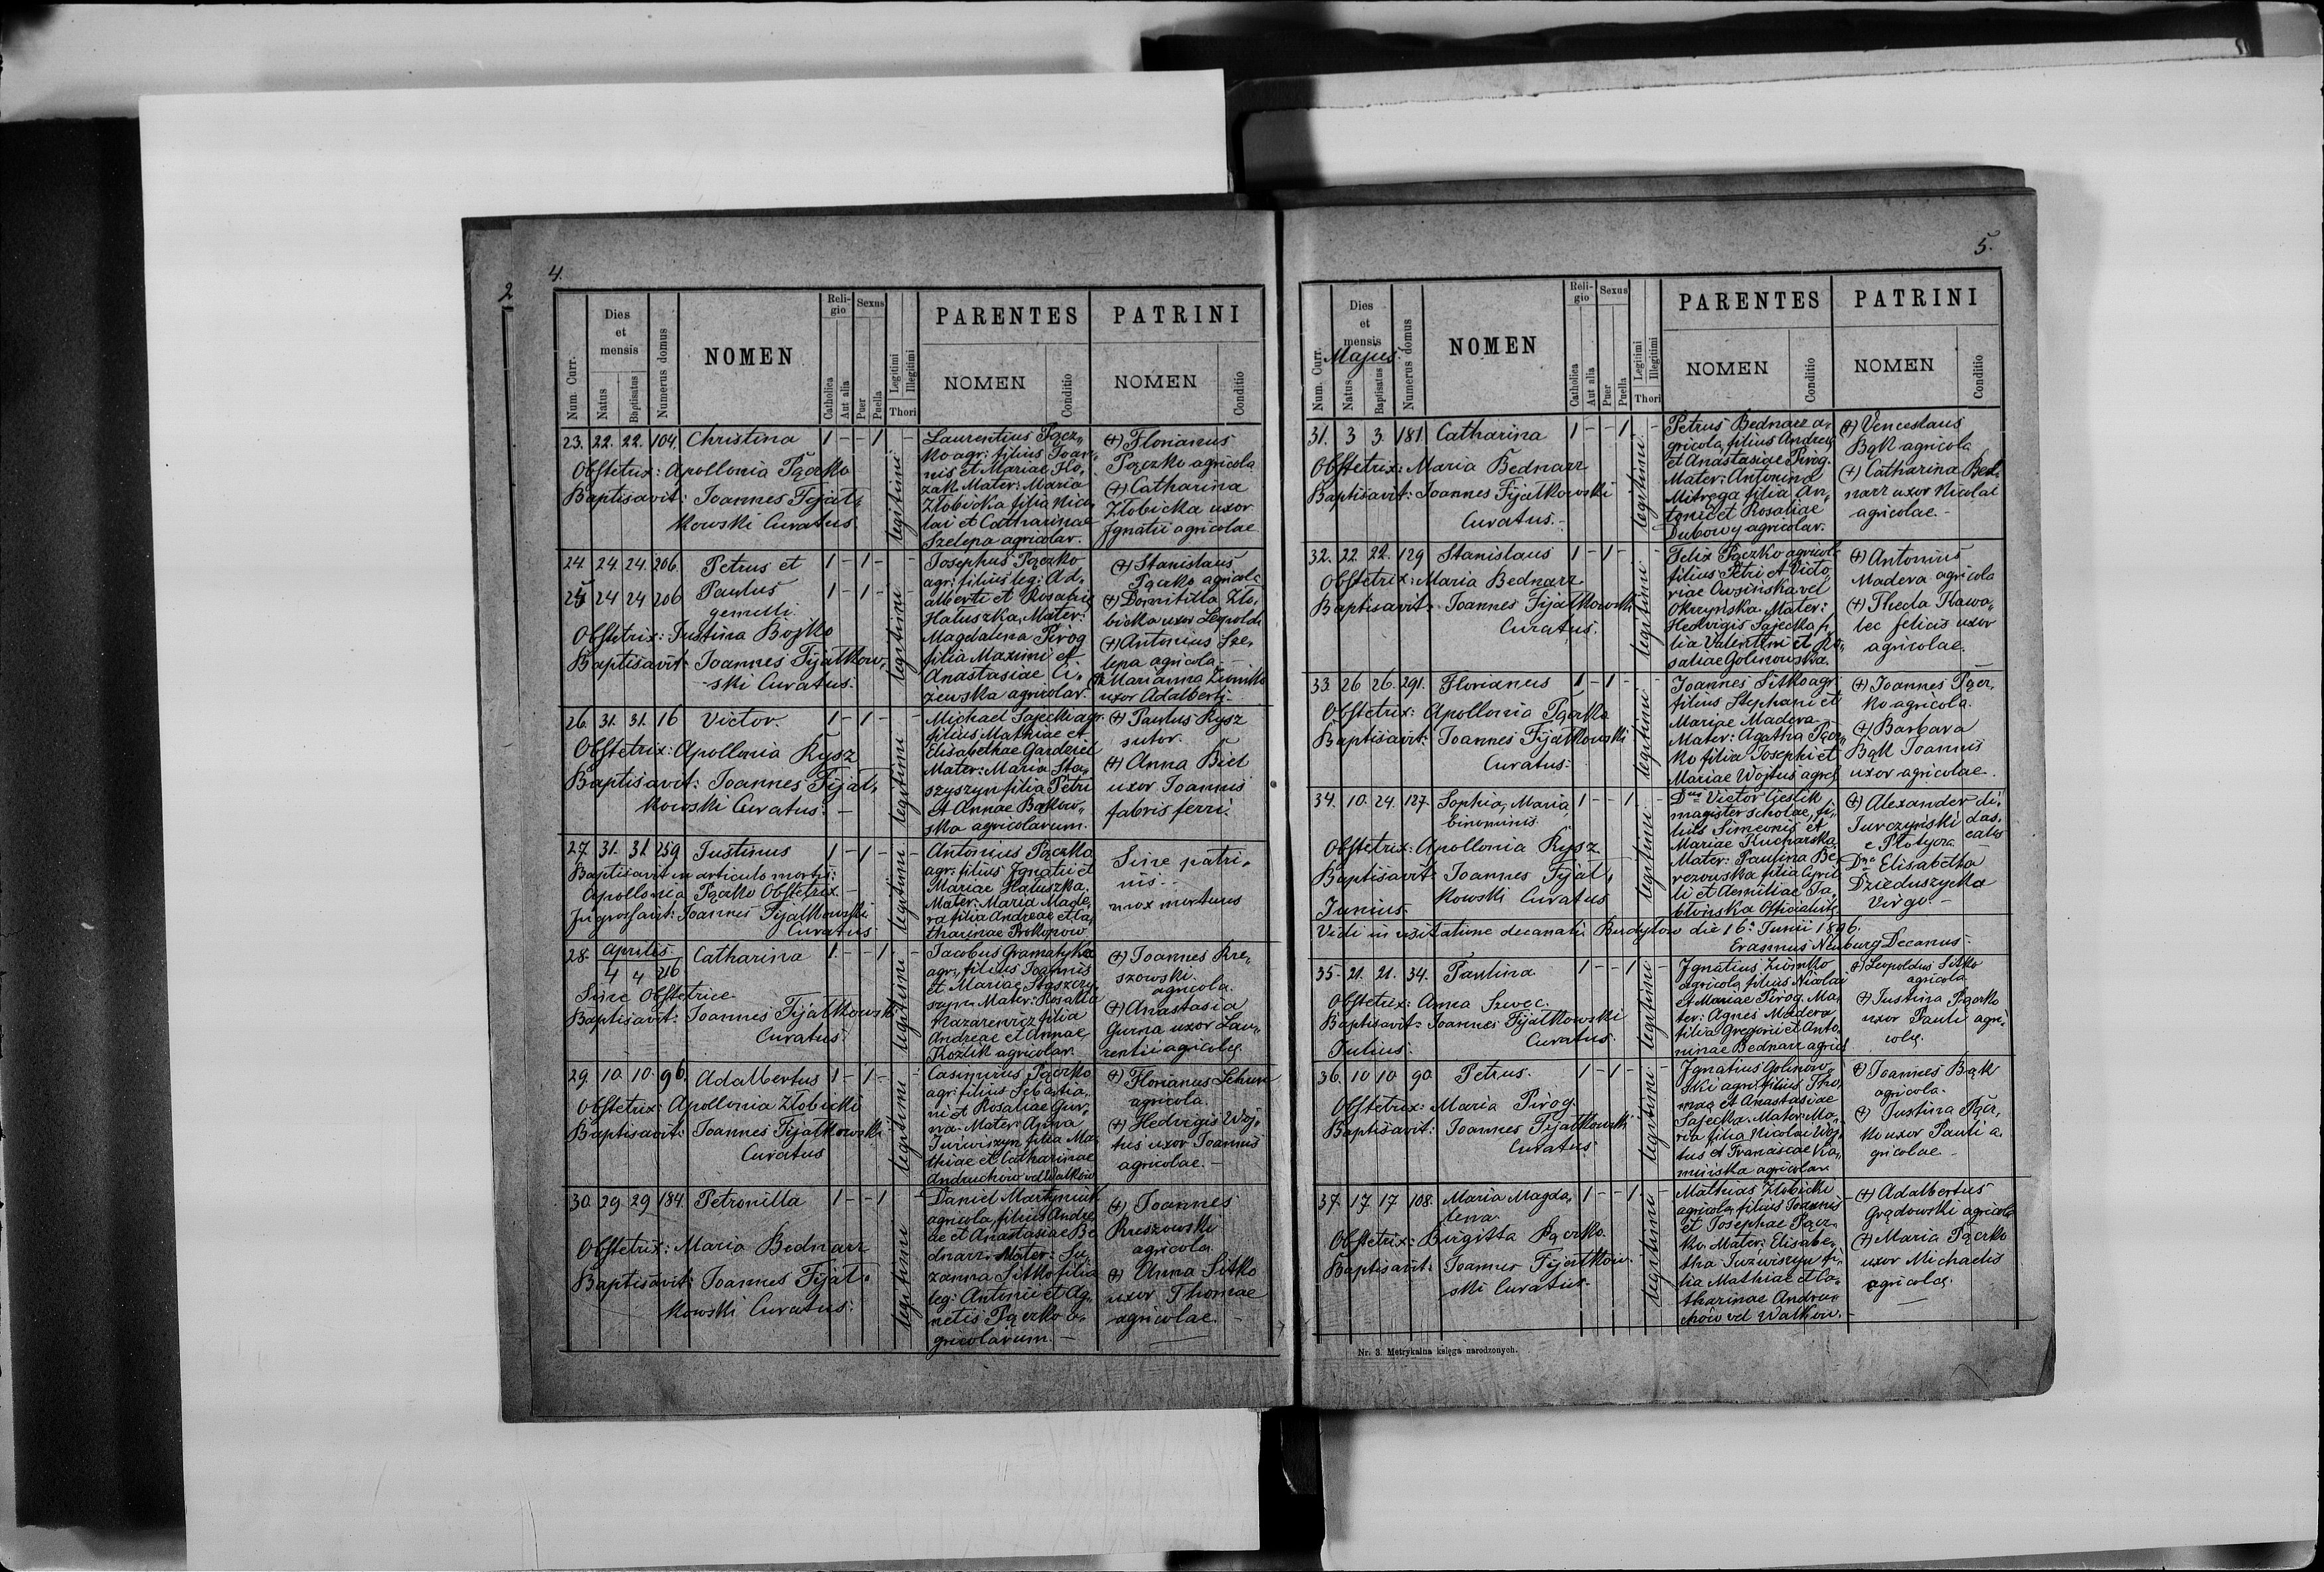 4.
2
Num. Curr.
Dies et mensis
Natus
Baptisatus
Numerus domus
NOMEN
Religio
Catholica
Aut alia
Sexus
Puer
Puella
Legitimi
Illegitimi
Thori
PARENTES
NOMEN
Conditio
PATRINI
NOMEN
Conditio
23. 22. 22. 104. Christina 1 - - 1 -
Obstetrix: Apollonia Pączko
Baptisavit: Joannes Fijał-
kowski Curatus.
legitimi
Laurentius Pącz„
ko agr: filius Joan„
nis et Mariae Ho„
zak Mater: Maria
Złobicka filia Nico„
lai et Catharinae
Szelepa agricolar.
(+) Florianus
Pączko agricola
(+) Catharina
Złobicka uxor
Jgnatii agricolae
24. 24. 24. 206. Petrus et 1 - 1 -
25 24 24 206 Paulus 1 - 1 -
gemelli.
Obstetrix: Justina Bojko
Baptisavit: Joannes Fijałkow„
ski Curatus.
legitimi
Josephus Pączko
agr: filius leg: Ad„
alberti et Rosaliae
Hałuszka, Mater:
Magdalena Pirog
filia Maximi et
Anastasiae Ci„
zewska agricolar.
(+) Stanislaus
Pączko agricola
(+) Domitilla Zło„
bicka uxor Leopoldi
(+) Antonius Sze„
lepa agricola
(+) Marianna Ziomko
uxor Adalberti
26. 31. 31. 16 Victor. 1 - 1 - -
Obstetrix: Apollonia Rysz
Baptisavit: Joannes Fijał„
kowski Curatus. -
legitimi
Michael Sajecki agr.
filius Mathiae et
Elisabethae Gardziel
Mater: Maria Sta„
szyszyn filia Petri
et Annae Bąkow„
ska agricolarum.
(+) Paulus Rysz
sutor.
(+) Anna Biel
uxor Joannis
fabris ferri.
27. 31. 31. 259 Justinus 1 - 1 - -
Baptisavit in articulo mortis:
Apollonia Pączko Obstetrix -
Jngrossavit: Joannes Fijałkowski
Curatus
legitimi
Antonius Pączko
agr: filius Jgnatii et
Mariae Hałuszka.
Mater: Maria Made„
ra filia Andreae et Ca„
tharinae Prokopow
Sine patri„
nis. -
mox mortuus
28. Aprilis Catharina 1. - - 1 -
4 4 216
Sine Obstetrice
Baptisavit: Joannes Fijałkowski
Curatus.
legitimi
Jacobus Gramatyka
agr., filius Joannis
et Mariae Staszczy„
szyn. Mater: Rosalia
Nazarewicz filia
Andreae et Annae
Kozlik agricolar.
(+) Joannes Kre„
szowski.
agricola.
(+) Anastasia
Gurna uxor Lau„
rentii agricolae
29. 10. 10. 96. Adalbertus 1 - 1 - -
Obstetrix: Apollonia Złobicki
Baptisavit: Joannes Fijałkowski
Curatus
legitimi
Casimirus Pączko
agr: filius Sebastia„
ni et Rosaliae Gur„
na. Mater: Anna
Juzwiszyn filia Ma„
thiae et Catharinae
Andruchow vel Walkow
(+) Florianus
agricola.
(+) Hedvigis Woj„
tus uxor Joannis
agricolae. -
30. 29. 29 184. Petronilla 1 - - 1 -
Obstetrix: Maria Bednarz
Baptisavit: Joannes Fijał„
kowski Curatus.
legitimi
Daniel Martyniuk
agricola, filius Andre
ae et Anastasiae Be
dnarz. Mater: Su„
zanna Sitko filia
leg: Antonii et Ag„
netis Pączko a„
gricolarum. -
(+) Joannes
Kreszowski
agricola
(+) Anna Sitko
uxor Thomae
agricolae. -
5.
Num. Curr.
Dies et mensis
Majus.
Natus
Baptisatus
Numerus domus
NOMEN
Religio
Catholica
Aut alia
Sexus
Puer
Puella
Legitimi
Illegitimi
Thori
PARENTES
NOMEN
Conditio
PATRINI
NOMEN
Conditio
31. 3 3. 181. Catharina 1 - - 1 -
Obstetrix: Maria Bednarz
Baptisavit: Joannes Fijałkowski
Curatus. -
legitimi
Petrus Bednarz a„
gricola, filius Andreae
et Anastasiae Pirog.
Mater: Antonina
Mitręga filia An„
tonii et Rosaliae
Dubowy agricolar.
(+) Venceslaus
Bąk agricola
(+) Catharina Bed„
narz uxor Nicolai
agricolae. -
32. 22. 22. 129 Stanislaus 1 - 1 - -
Obstetrix: Maria Bednarz
Baptisavit: Joannes Fijałkowski
Curatus.
legitimi
Felix Pączko agricola
filius Petri et Victo„
riae Owsińska vel
Okrzyńska. Mater:
Hedvigis Sajecka fi
lia Valentini et Ro„
saliae Golinowska.
(+) Antonius
Madera agricola
(+) Theela Kawa„
lec felicis uxor
agricolae.
33. 26 26. 291. Florianus 1 - 1 - -
Obstetrix: Apollonia Pączko
Baptisavit: Joannes Fijałkowski
Curatus.
legitimi
Joannes Sitko agr:
filius Stephani et
Mariae Madera
Mater: Agatha Pącz„
ko filia Josephi et
Mariae Wojtus agrcl
(+) Joannes Pącz„
ko agricola.
(+) Barbara
Bąk Joannis
uxor agricolae.
34. 10. 24. 127. Sophia, Maria 1 - - 1 -
binominis.
Obstetrix: Apollonia Rysz
Baptisavit: Joannes Fijał„
Junius. kowski Curatus
legitimi
Dnus Victor Cieslik
magister scholae, fi„
lius Simeonis et
Mariae Kucharska.
Mater: Paulina Be„
rezowska filia Cyril
li et Aemiliae Ja„
błońska
(+) Alexander di„
Jurczyński das„
calus
e Płotycza
Dna Elisabetha
Dzieduszycka
Virgo -
Vidi in visitatione decanali Burdytow die 16a Junii 1896.
Erasmus Neuburg Decanus.
35. 21. 21. 34. Paulina 1 - - 1 -
Obstetrix: Anna Szwec.
Baptisavit: Joannes Fijałkowski
Julius. Curatus.
legitimi
Jgnatius Ziomko
agricola, filius Nicolai
et Mariae Pirog. Ma„
ter: Agnes Madera
filia Gregorii et Anto„
ninae Bednarz agricl
(+) Leopoldus Sitko
agricola
(+) Justina Pączko
uxor Pauli agri„
colae.
36. 10 10 90. Petrus. 1 - 1 - -
Obstetrix: Maria Pirog.
Baptisavit: Joannes Fijałkowski
Curatus
legitimi
Jgnatius Golinow„
ski agr: filius Tho„
mae et Anastasiae
Sajecka. Mater: Ma„
ria filia Nicolai Woj„
tus et Franciscae Ka„
minska agricolar.
(+) Joannes Bąk
agricola.
(+) Justina Pącz„
ko uxor Pauli a„
gricolae. -
37. 17 17 108. Maria Magda„ 1 - - 1 -
lena.
Obstetrix: Birgitta Pączko.
Baptisavit: Joannes Fijałkow„
ski Curatus.
legitimi
Mathias Złobicki
agricola, filius Joannis
et Josephae Pącz„
ko. Mater: Elisabe„
tha Juzwiszyn fi„
lia Mathiae et Ca„
tharinae Andru„
chów vel Walkow. -
(+) Adalbertus
Grądowski agricola
(+) Maria Pączko
uxor Michaelis
agricolae
Nr. 3. Metrykalna księga narodzonych.